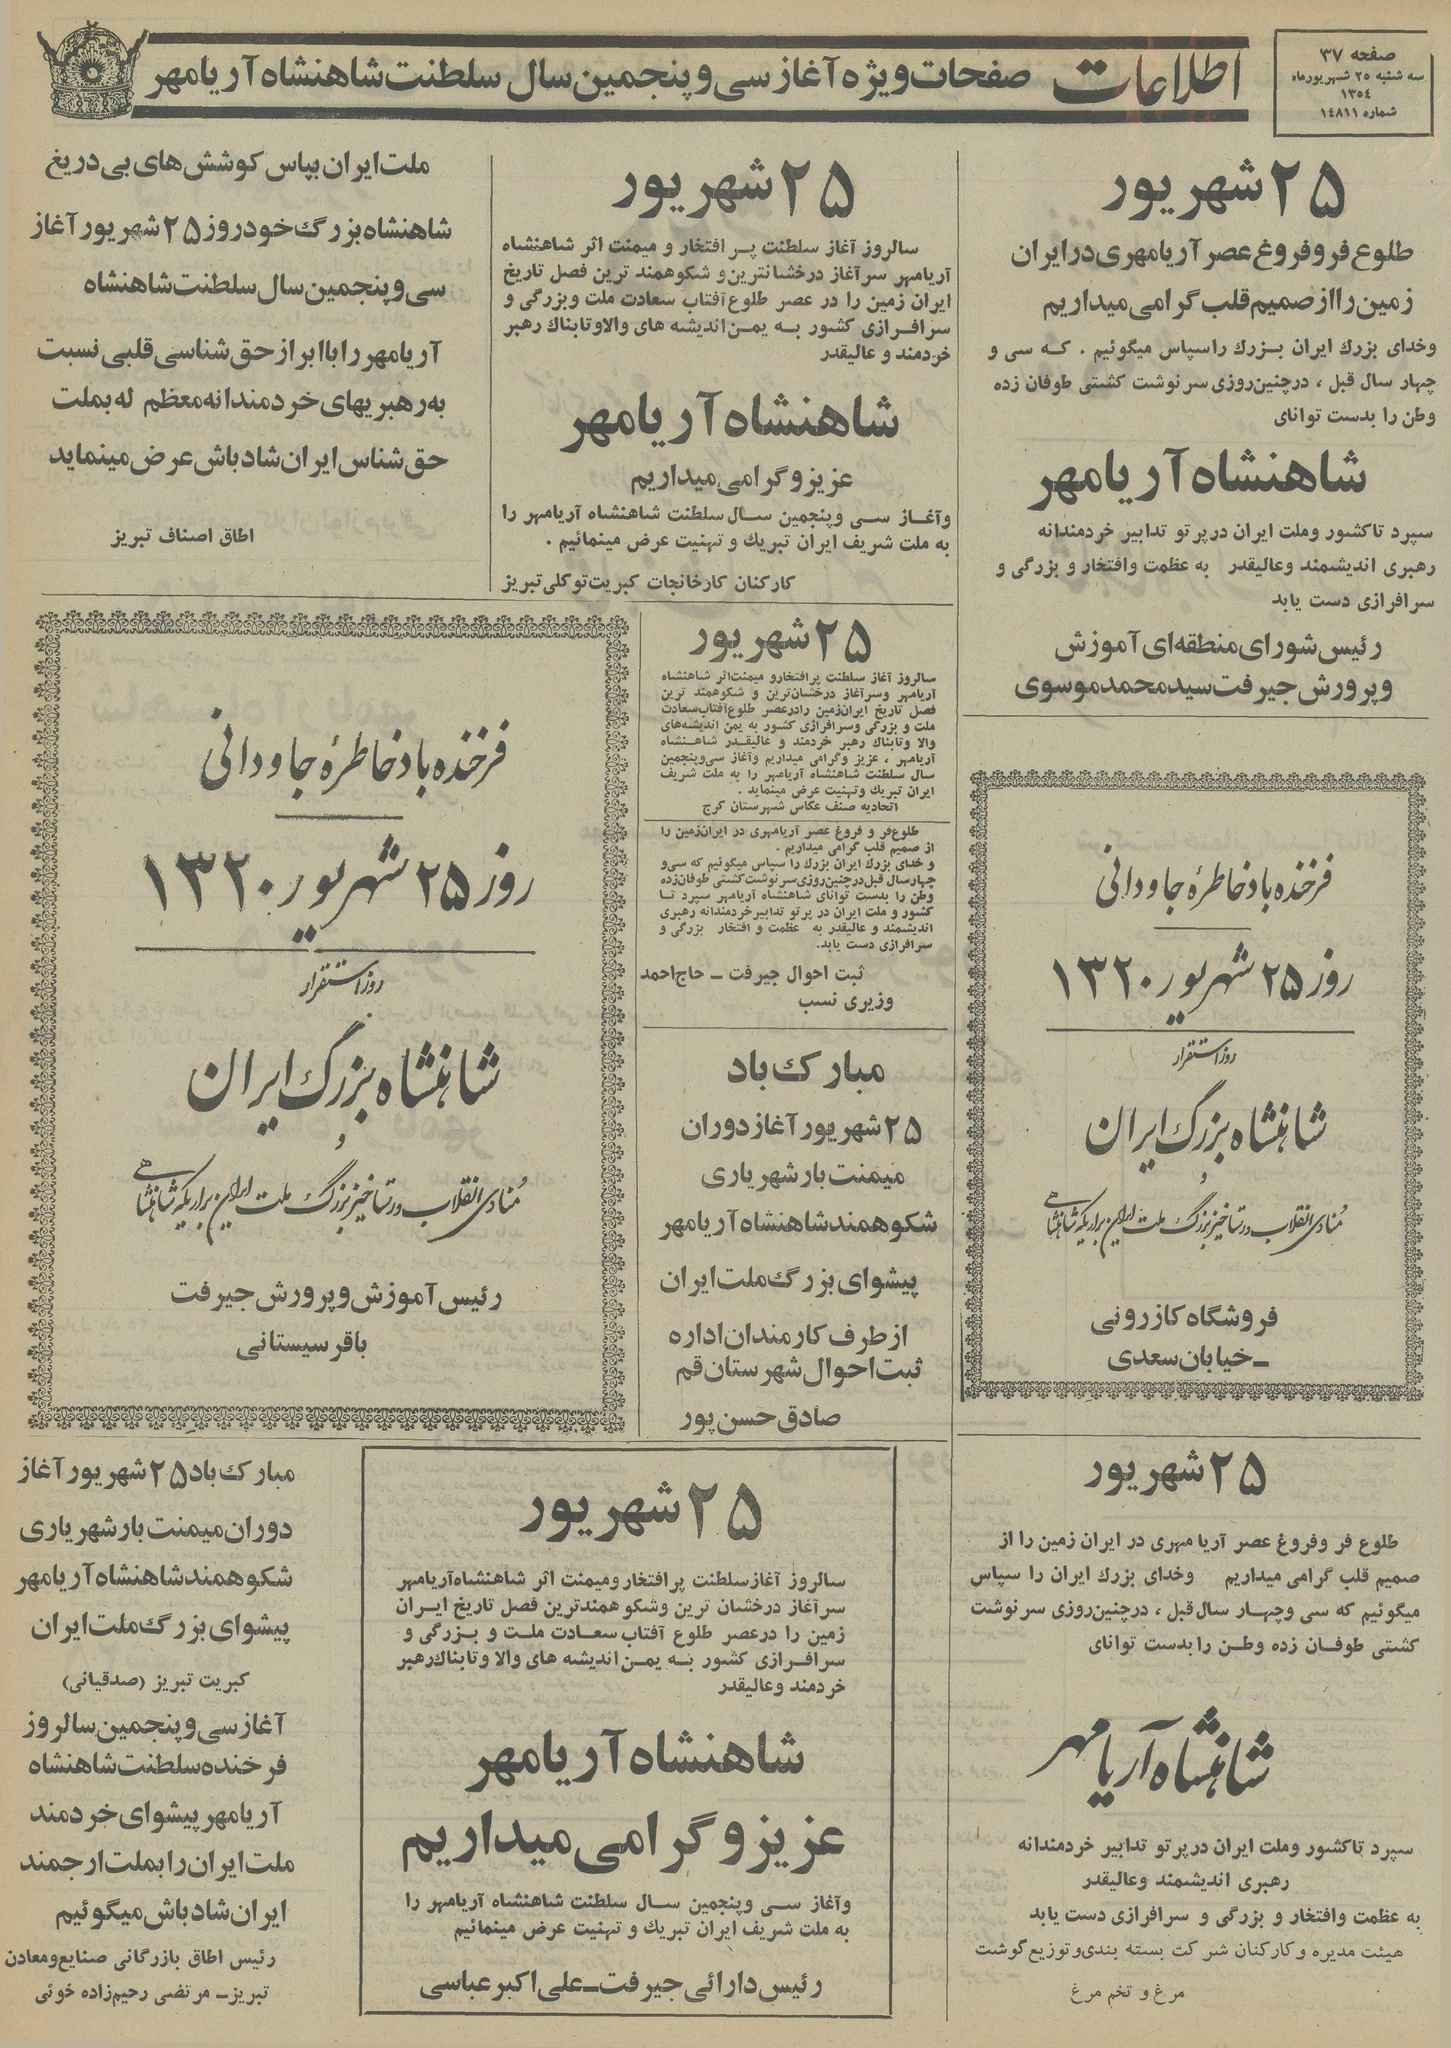 صفحه ۳۷
سه شنبه ۲۵ شهریورماه
۱۳۵۴
شماره ۱۴۸۱۱
اطلاعات
صفحات ویژه آغاز سی و پنجمین سال سلطنت شاهنشاه آریامهر
۲۵ شهریور
طلوع فر و فروغ عصر آریامهری در ایران
زمین را از صمیم قلب گرامی میداریم
وخدای بزرگ ایران بزرگ را سپاس میگوئیم . که سی و
چهار سال قبل ، درچنین‌روزی سرنوشت کشتی طوفان زده
وطن را بدست توانای
شاهنشاه آریامهر
سپرد تاکشور وملت ایران درپرتو تدابیر خردمندانه
رهبری اندیشمند وعالیقدر به عظمت وافتخار و بزرگی و
سرافرازی دست یابد
رئیس شورای منطقه‌ای آموزش
و پرورش جیرفت سید محمد موسوی
فرخنده باد خاطرهٔ جاودانی
روز ۲۵ شهریور ۱۳۲۰
روز استقرار
شاهنشاه بزرگ ایران
و
مُنادی انقلاب و رستاخیز بزرگ ملت ایران بر اریکه شاهنشاهی
فروشگاه کازرونی
ـ خیابان سعدی
۲۵ شهریور
طلوع فر وفروغ عصر آریا مهری در ایران زمین را از
صمیم قلب گرامی میداریم وخدای بزرگ ایران را سپاس
میگوئیم که سی وچهار سال قبل ، درچنین‌روزی سرنوشت
کشتی طوفان زده وطن را بدست توانای
شاهنشاه آریامهر
سپرد تاکشور وملت ایران درپرتو تدابیر خردمندانه
رهبری اندیشمند وعالیقدر
به عظمت وافتخار و بزرگی و سرافرازی دست یابد
هیئت مدیره و کارکنان شرکت بسته بندی و توزیع گوشت
مرغ و تخم مرغ
۲۵ شهریور
سالروز آغاز سلطنت پر افتخار و میمنت اثر شاهنشاه
آریامهر سرآغاز درخشانترین و شکوهمند ترین فصل تاریخ
ایران زمین را در عصر طلوع آفتاب سعادت ملت وبزرگی و
سرافرازی کشور به یمن اندیشه های والا و تابناك رهبر
خردمند و عالیقدر
شاهنشاه آریامهر
عزیز و گرامی میداریم
وآغاز سی وپنجمین سال سلطنت شاهنشاه آریامهر را
به ملت شریف ایران تبریك و تهنیت عرض مینمائیم .
کارکنان کارخانجات کبریت توکلی تبریز
ملت ایران بپاس کوشش های بی دریغ
شاهنشاه بزرگ خود روز ۲۵ شهریور آغاز
سی و پنجمین سال سلطنت شاهنشاه
آریامهر را با ابراز حق شناسی قلبی نسبت
به رهبریهای خردمندانه معظم له بملت
حق شناس ایران شادباش عرض مینماید
اطاق اصناف تبریز
۲۵ شهریور
سالروز آغاز سلطنت پر افتخارو میمنت‌اثر شاهنشاه
آریامهر وسرآغاز درخشان‌ترین و شکوهمند ترین
فصل تاریخ ایران‌زمین رادرعصر طلوع‌آفتاب‌سعادت
ملت و بزرگی وسرافرازی کشور به یمن اندیشه‌های
والا وتابناك رهبر خردمند و عالیقدر شاهنشاه
آریامهر ، عزیز وگرامی میداریم وآغاز سی‌وپنجمین
سال سلطنت شاهنشاه آریامهر را به ملت شریف
ایران تبریك وتهنیت عرض مینماید .
اتحادیه صنف عکاس شهرستان کرج
طلوع‌فر و فروغ عصر آریامهری در ایران‌زمین را
از صمیم قلب گرامی میداریم .
و خدای بزرگ ایران بزرگ را سپاس میگوئیم که سی‌و
چهارسال قبل‌درچنین‌روزی‌سرنوشت‌کشتی طوفان‌زده
وطن را بدست توانای شاهنشاه آریامهر سپرد تا
کشور و ملت ایران در پرتو تدابیرخردمندانه رهبری
اندیشمند و عالیقدر به عظمت و افتخار بزرگی و
سرافرازی دست یابد.
ثبت احوال جیرفت ـ حاج‌احمد
وزیری نسب
مبارك باد
۲۵ شهریور آغاز دوران
میمنت بار شهریاری
شکوهمند شاهنشاه آریامهر
پیشوای بزرگ ملت ایران
از طرف کارمندان اداره
ثبت احوال شهرستان قم
صادق حسن پور
فرخنده باد خاطرهٔ جاودانی
روز ۲۵ شهریور ۱۳۲۰
روز استقرار
شاهنشاه بزرگ ایران
و
مُنادی انقلاب و رستاخیز بزرگ ملت ایران بر اریکه شاهنشاهی
رئیس آموزش و پرورش جیرفت
باقر سیستانی
۲۵ شهریور
سالروز آغاز سلطنت پر افتخار ومیمنت اثر شاهنشاه‌آریامهر
سرآغاز درخشان ترین وشکو همندترین فصل تاریخ ایران
زمین را درعصر طلوع آفتاب سعادت ملت و بزرگی و
سرافرازی کشور به یمن اندیشه های والا وتابناك‌رهبر
خردمند وعالیقدر
شاهنشاه آریامهر
عزیز و گرامی میداریم
وآغاز سی وپنجمین سال سلطنت شاهنشاه آریامهر را
به ملت شریف ایران تبریك و تهنیت عرض مینمائیم
رئیس دارائی جیرفت ـ علی اکبر عباسی
مبارك باد ۲۵ شهریور آغاز
دوران میمنت بار شهریاری
شکوهمند شاهنشاه آریامهر
پیشوای بزرگ ملت ایران
کبریت تبریز (صدقیانی)
آغاز سی و پنجمین سالروز
فرخنده سلطنت شاهنشاه
آریامهر پیشوای خردمند
ملت ایران را بملت ارجمند
ایران شادباش میگوئیم
رئیس اطاق بازرگانی صنایع ومعادن
تبریز ـ مرتضی رحیم‌زاده خوئی